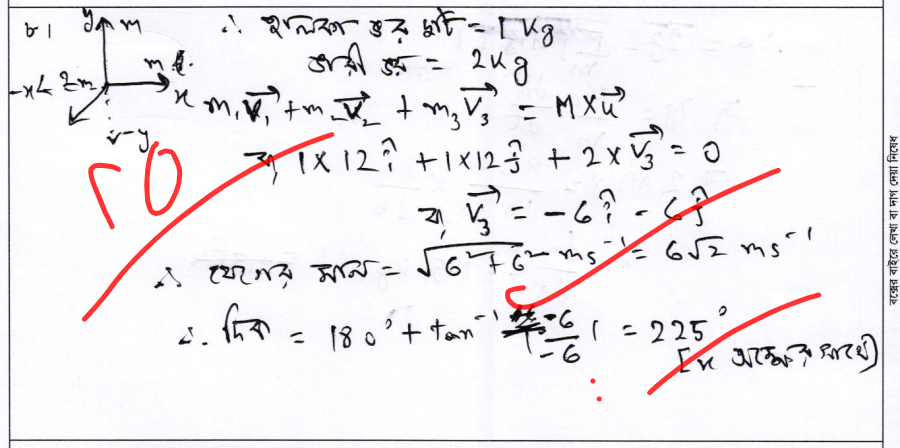 ৮।
y m
∴ হালকা ভর দুটি = 1 kg
ভারী ভর = 2 kg
-x 2m m x
-y
m₁v⃗₁ + m₂v⃗₂ + m₃v⃗₃ = M×u⃗
বা, 1×12î + 1×12ĵ + 2×v⃗₃ = 0
বা, v⃗₃ = -6î - 6ĵ
∴ বেগের মান = √(6²+6²) ms⁻¹ = 6√2 ms⁻¹
∴ দিক = 180° + tan⁻¹ |-6/-6| = 225°
[x অক্ষের সাথে]
10
বক্সের বাইরে লেখা বা দাগ দেয়া নিষেধ